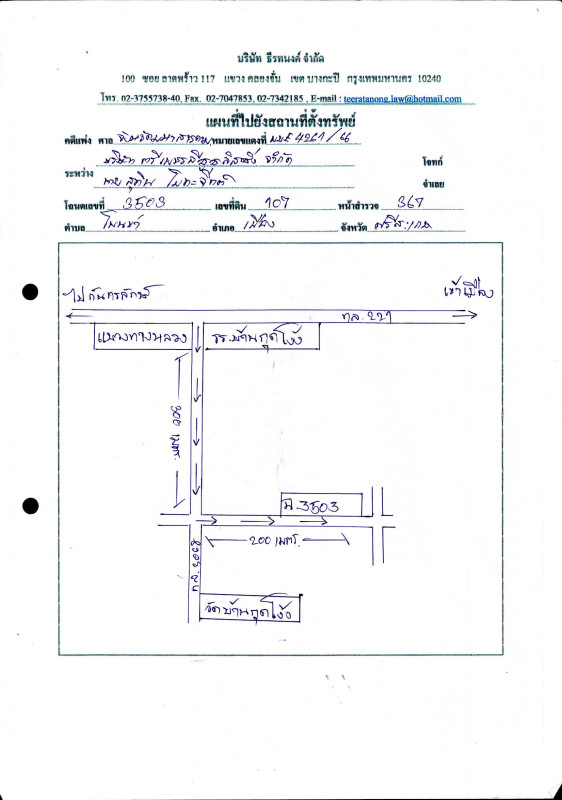 บริษัท ธีรทนงค์ จำกัด
100 ซอย ลาดพร้าว 117 แขวง คลองจั่น เขต บางกะปิ กรุงเทพมหานคร 10240
โทร. 02-3755738-40, Fax. 02-7047853, 02-7342185 , E-mail : teeratanong.law@hotmail.com
แผนที่ไปยังสถานที่ตั้งทรัพย์
คดีแพ่ง ศาล หมายเลขแดงที่
บริษัท จำกัด โจทก์
ระหว่าง
นาย จำเลย
โฉนดเลขที่ 3503 เลขที่ดิน 107 หน้าสำรวจ 367
ตำบล อำเภอ เมือง จังหวัด ศรีสะเกษ
ไปกันทรลักษ์ เข้าเมือง
ทล. 221
แขวงทางหลวง รร.บ้านกุดโง้ง
300 เมตร
ฉ.3503
200 เมตร
วัดบ้านกุดโง้ง